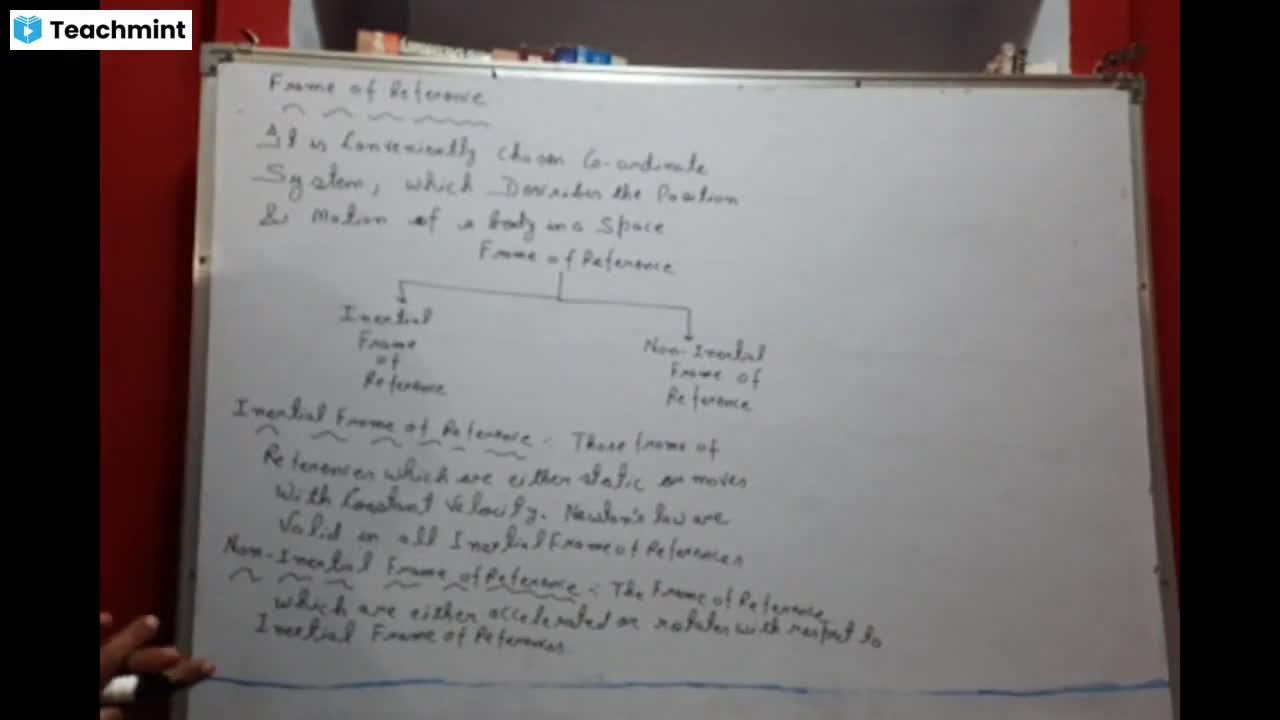 Teachmint
Frame of Reference
It is Conveniently Chosen Co-ordinate
System, which Describes the Position
& Motion of a body in a Space
Frame of Reference
Inertial
Frame
of
Reference
Non-Inertial
Frame of
Reference
Inertial Frame of Reference :- Those frame of
References which are either static or moves
With Constant Velocity. Newton's law are
Valid in all Inertial Frame of References
Non-Inertial Frame of Reference :- The Frame of Reference
which are either accelerated or rotates with respect to
Inertial Frame of References.